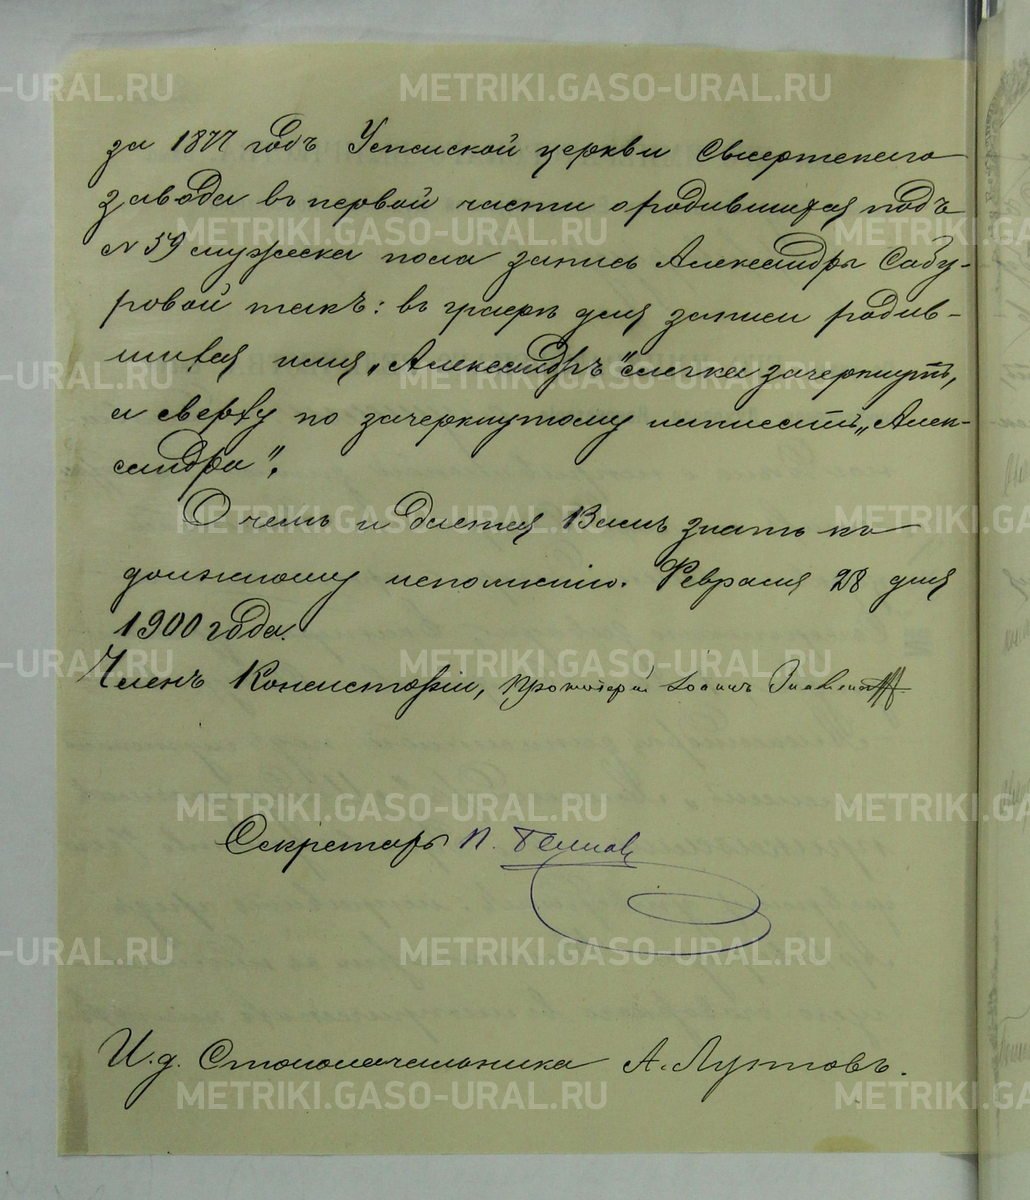 за 1877 годъ Успенской церкви Сысертскаго
завода въ первой части о родившихся подъ
№ 59 мужеска пола запись Александры Сабу-
ровой такъ: въ графѣ для записи родив-
шихся имя „Александръ" слегка зачеркнуть,
а сверху по зачеркнутому написать „Алек-
сандра".
О чемъ и дается Вамъ знать къ
должному исполненію. Февраля 28 дня
1900 года.
Членъ Консисторіи, Протоіерей Іоаннъ
Секретарь П.
И.д. Столоначальника А. Луттовъ.
METRIKI.GASO-URAL.RU